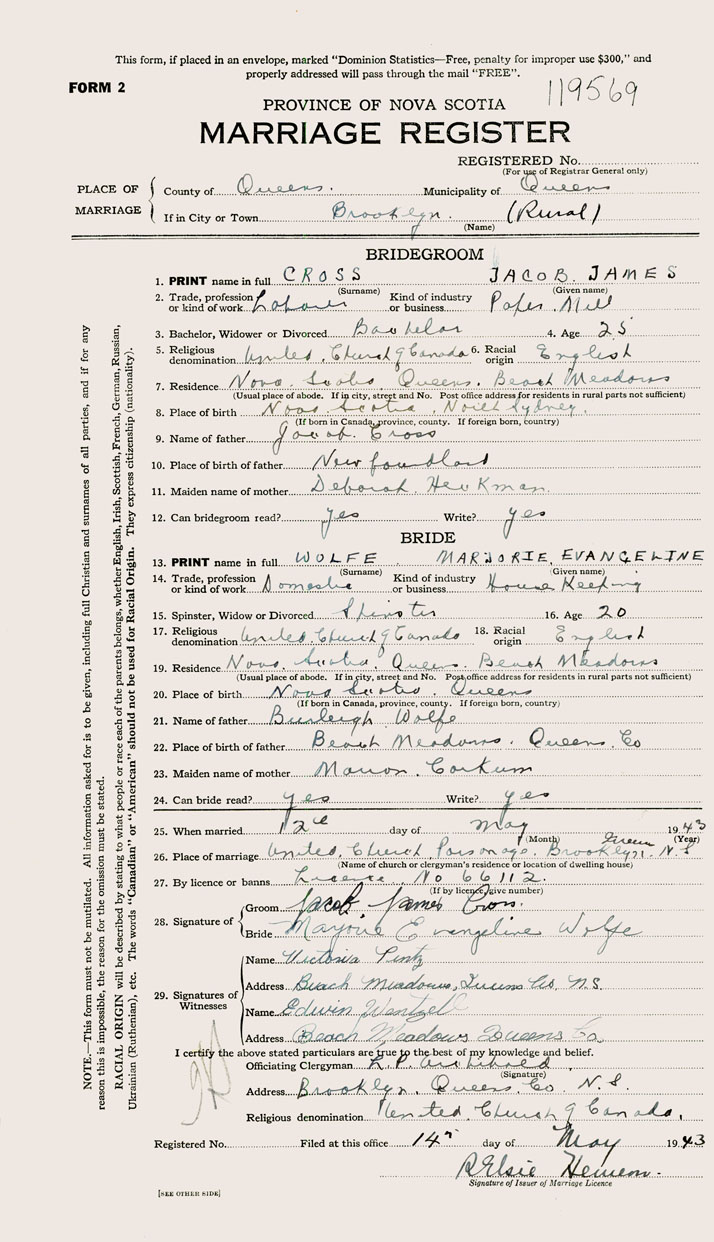 This form, if placed in an envelope, marked "Dominion Statistics—Free, penalty for improper use $300," and
properly addressed will pass through the mail "FREE".
FORM 2
119569
PROVINCE OF NOVA SCOTIA
MARRIAGE REGISTER
REGISTERED No.
(For use of Registrar General only)
PLACE OF MARRIAGE
County of Queens. Municipality of Queens
If in City or Town Brooklyn. (Rural)
(Name)
BRIDEGROOM
1. PRINT name in full CROSS JACOB JAMES
(Surname) (Given name)
2. Trade, profession or kind of work Labourer Kind of industry or business Paper Mill
3. Bachelor, Widower or Divorced Bachelor 4. Age 25
5. Religious denomination United Church of Canada 6. Racial origin English
7. Residence Nova Scotia, Queens. Beach Meadows
(Usual place of abode. If in city, street and No. Post office address for residents in rural parts not sufficient)
8. Place of birth Nova Scotia, North Sydney.
(If born in Canada, province, county. If foreign born, country)
9. Name of father Jacob Cross
10. Place of birth of father Newfoundland
11. Maiden name of mother Deborah
12. Can bridegroom read? yes Write? yes
BRIDE
13. PRINT name in full WOLFE MARJORIE EVANGELINE
(Surname) (Given name)
14. Trade, profession or kind of work Domestic Kind of industry or business House Keeping
15. Spinster, Widow or Divorced Spinster 16. Age 20
17. Religious denomination United Church of Canada 18. Racial origin English
19. Residence Nova Scotia Queens. Beach Meadows
(Usual place of abode. If in city, street and No. Post office address for residents in rural parts not sufficient)
20. Place of birth Nova Scotia, Queens
(If born in Canada, province, county. If foreign born, country)
21. Name of father Burleigh Wolfe
22. Place of birth of father Beach Meadows. Queens Co
23. Maiden name of mother Marion Corkum
24. Can bride read? yes Write? yes
25. When married 12th day of May 1943
(Month) (Year)
26. Place of marriage United Church Parsonage, Brooklyn, N.S
(Name of church or clergyman's residence or location of dwelling house)
27. By licence or banns Licence, No 66112.
(If by licence, give number)
28. Signature of
Groom Jacob James Cross.
Bride Marjorie Evangeline Wolfe
29. Signatures of Witnesses
Name Victoria
Address Beach Meadows, Queens Co. N.S.
Name Edwin Wentzell
Address Beach Meadows Queens Co.
I certify the above stated particulars are true to the best of my knowledge and belief.
Officiating Clergyman L.P. Archibald
(Signature)
Address Brooklyn, Queens Co. N.S.
Religious denomination United Church of Canada.
Registered No. Filed at this office 14th day of May 1943
Elsie
Signature of Issuer of Marriage Licence
[SEE OTHER SIDE]
NOTE.—This form must not be mutilated. All information asked for is to be given, including full Christian and surnames of all parties, and if for any
reason this is impossible, the reason for the omission must be stated.
RACIAL ORIGIN will be described by stating to what people or race each of the parents belongs, whether English, Irish, Scottish, French, German, Russian,
Ukrainian (Ruthenian), etc. The words "Canadian" or "American" should not be used for Racial Origin. They express citizenship (nationality).